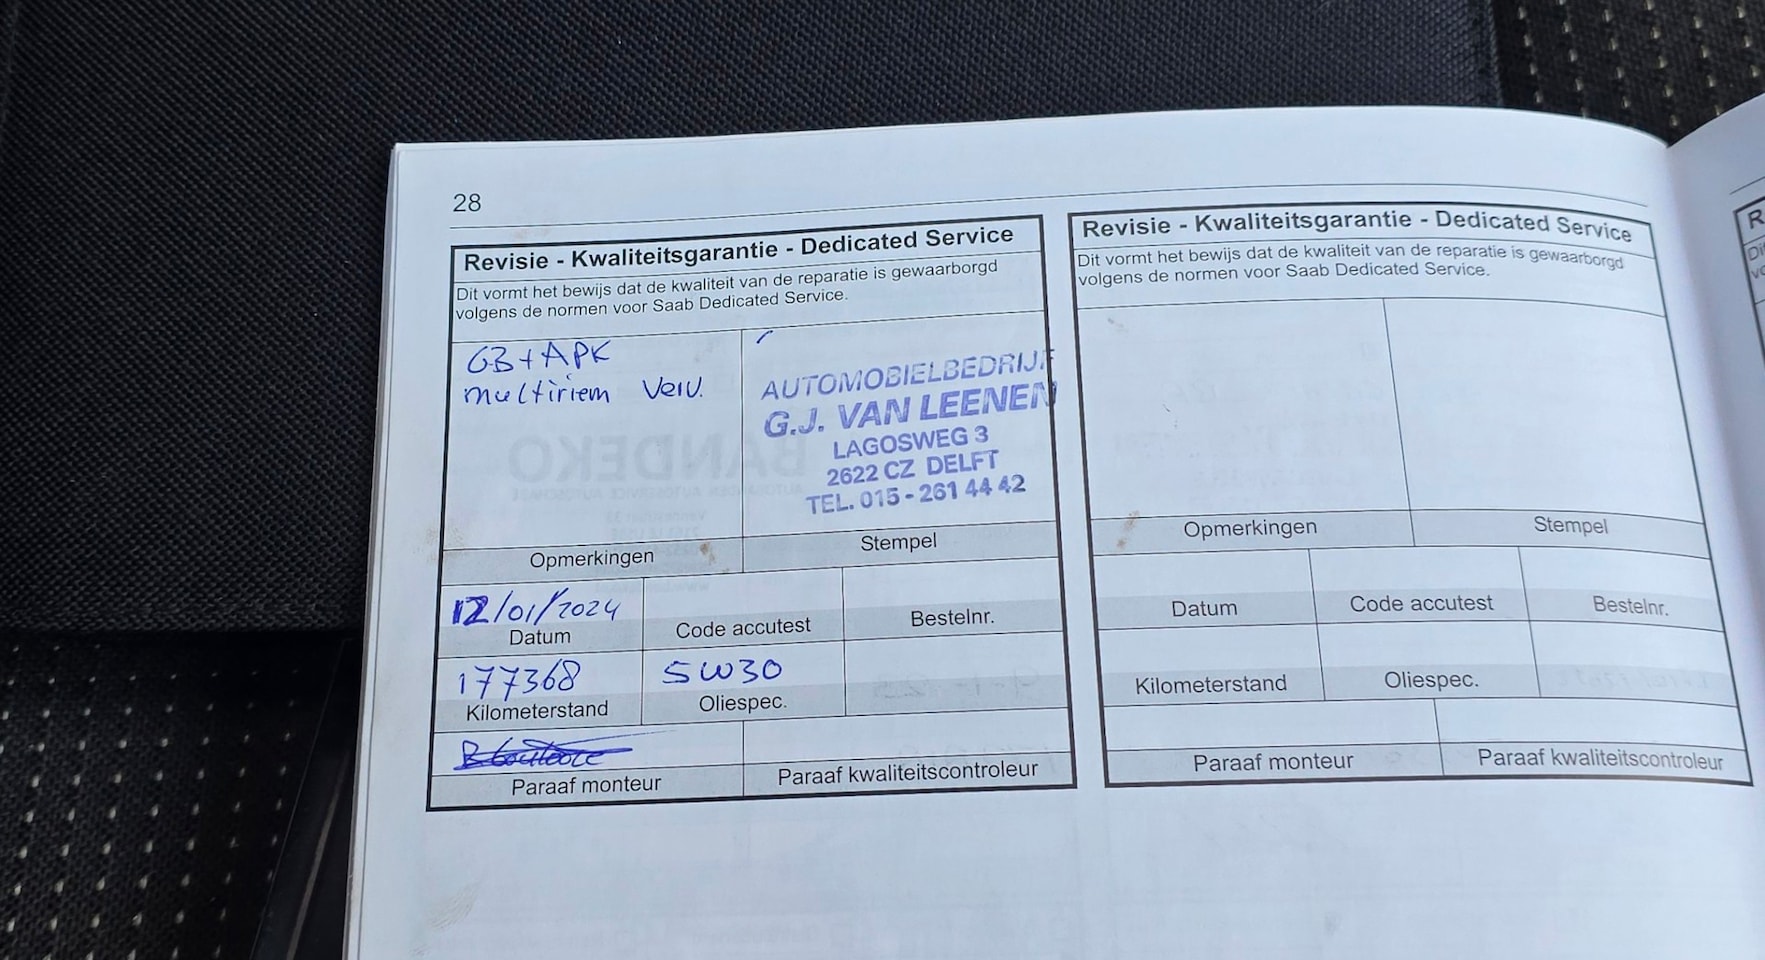 28
Revisie - Kwaliteitsgarantie - Dedicated Service
Dit vormt het bewijs dat de kwaliteit van de reparatie is gewaarborgd
volgens de normen voor Saab Dedicated Service.
GB+APK
multiriem Verv.
AUTOMOBIELBEDRIJF
G.J. VAN LEENEN
LAGOSWEG 3
2622 CZ DELFT
TEL. 015 - 261 44 42
Opmerkingen
Stempel
12/01/2024
Datum
Code accutest
Bestelnr.
177368
5W30
Kilometerstand
Oliespec.
Paraaf monteur
Paraaf kwaliteitscontroleur
Revisie - Kwaliteitsgarantie - Dedicated Service
Dit vormt het bewijs dat de kwaliteit van de reparatie is gewaarborgd
volgens de normen voor Saab Dedicated Service.
Opmerkingen
Stempel
Datum
Code accutest
Bestelnr.
Kilometerstand
Oliespec.
Paraaf monteur
Paraaf kwaliteitscontroleur